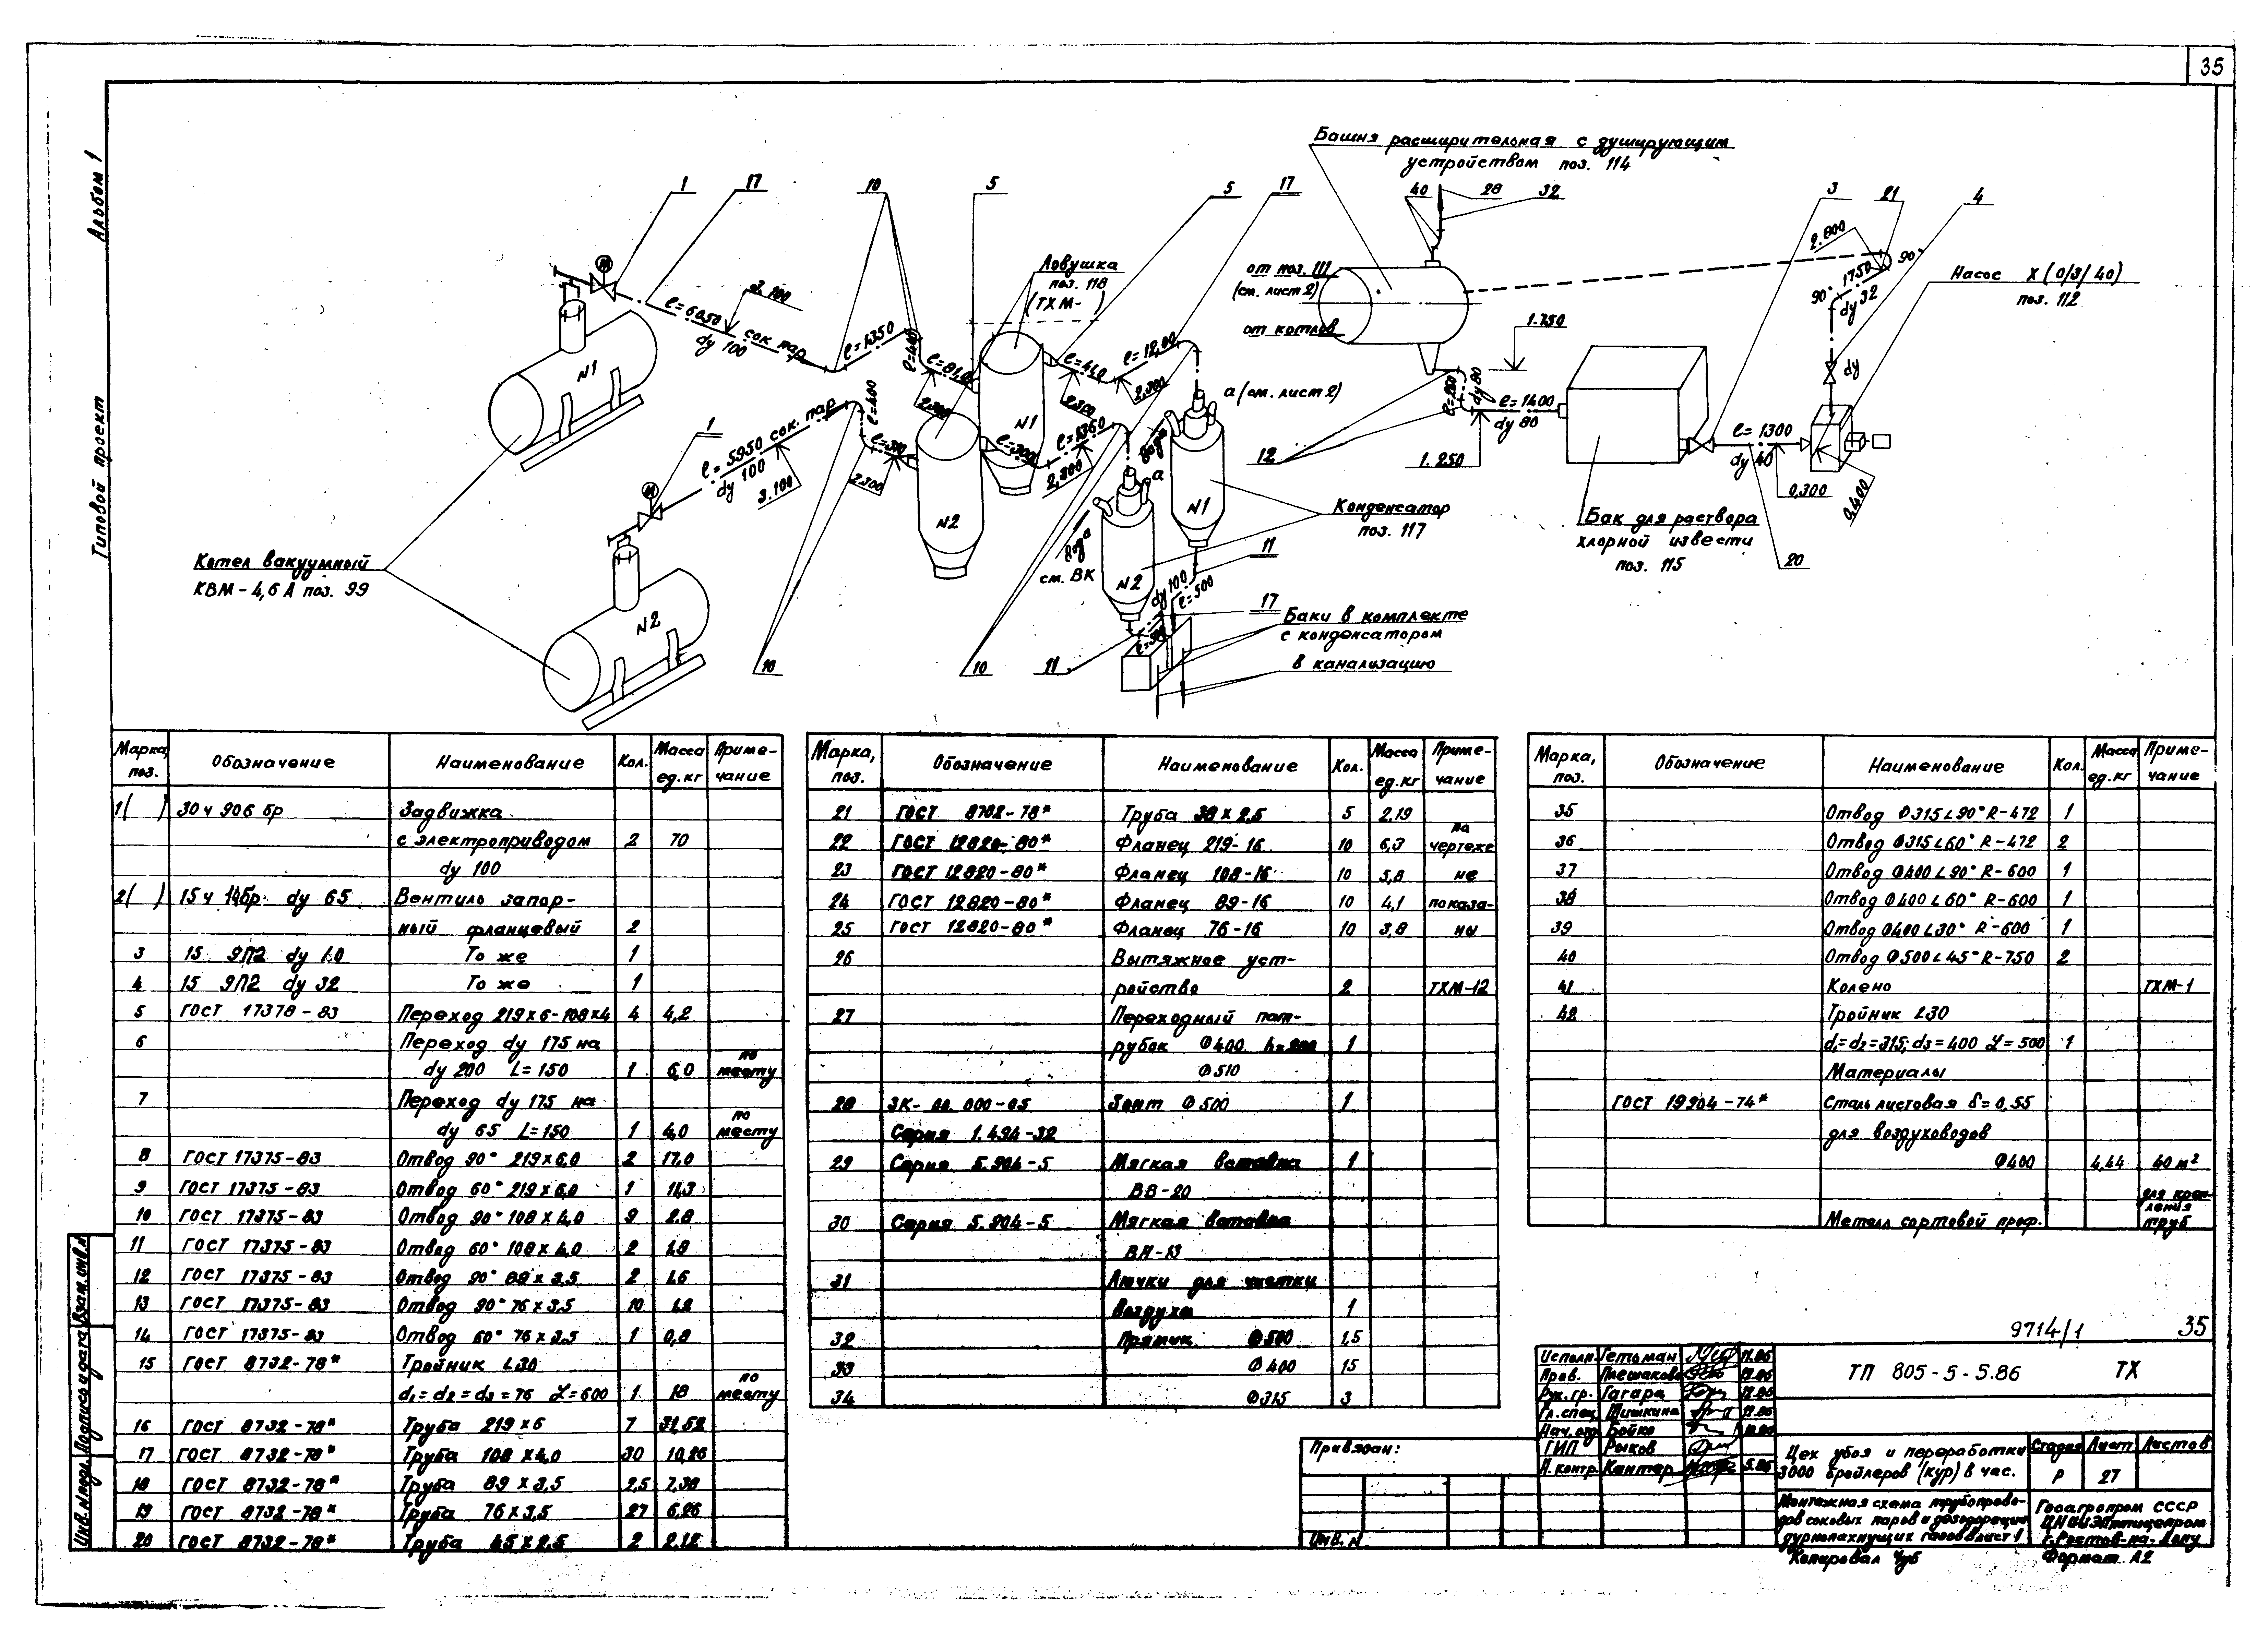 35
Альбом 1
Типовой проект
Башня расширительная с душирующим
устройством поз. 114
1
17
10
5
5
17
40
28
32
3
21
4
Ловушка
поз. 118
(ТХМ- )
от поз. 111
(см. лист 2)
от котлов
2.800
90°
1750
90°
dy 32
Насос Х (0/3/40)
поз. 112
ℓ=6050
dy 100
3.100
сок пар
ℓ=1350
ℓ=400
N1
N1
2.300
1.750
dy 80
ℓ=1400
dy 80
1.250
dy
ℓ=1300
dy 40
0,300
0,400
а (см. лист 2)
1
ℓ=5950 сок. пар
dy 100
3.100
ℓ=400
2.300
2,300
2,300
N2
вода
а
вода
см. ВК
N1
N2
12
Конденсатор
поз. 117
Бак для раствора
хлорной извести
поз. 115
20
Котел вакуумный
КВМ-4,6 А поз. 99
N2
11
dy 100
ℓ=500
17
Баки в комплекте
с конденсатором
в канализацию
10
10
11
Марка, поз. Обозначение Наименование Кол. Масса ед.кг Примечание
1( ) 30 ч 906 бр Задвижка
с электроприводом 2 70
dy 100
2( ) 15 ч 14бр dy 65 Вентиль запор-
ный фланцевый 2
3 15 9П2 dy То же 1
4 15 9П2 dy 32 То же 1
5 ГОСТ 17378-83 Переход 219х6-108х4 4 4,2
6 Переход dy 175 на
dy 200 L=150 1 6,0 по месту
7 Переход dy 175 на
dy 65 L=150 1 4,0 по месту
8 ГОСТ 17375-83 Отвод 90° 219х6,0 2 17,0
9 ГОСТ 17375-83 Отвод 60° 219х6,0 1 11,3
10 ГОСТ 17375-83 Отвод 90° 108х4,0 9 2.8
11 ГОСТ 17375-83 Отвод 60° 108х4,0 2 1.8
12 ГОСТ 17375-83 Отвод 90° 89х3,5 2 1.6
13 ГОСТ 17375-83 Отвод 90° 76х3,5 10 1.2
14 ГОСТ 17375-83 Отвод 60° 76х3,5 1 0,8
15 ГОСТ 8732-78* Тройник L30
d₁=d₂=d₃=76 L=600 1 18 по месту
16 ГОСТ 8732-78* Труба 219х6 7 31,52
17 ГОСТ 8732-78* Труба 108х4,0 30 10,26
18 ГОСТ 8732-78* Труба 89х3,5 2,5 7,38
19 ГОСТ 8732-78* Труба 76х3,5 27 6,26
20 ГОСТ 8732-78* Труба 45х2,5 2 2.12
Марка, поз. Обозначение Наименование Кол. Масса ед.кг Примечание
21 ГОСТ 8732-78* Труба 38х2,5 5 2,19
22 ГОСТ 12820-80* Фланец 219-16 10 6,3 на чертеже
23 ГОСТ 12820-80* Фланец 108-16 10 5,8 не
24 ГОСТ 12820-80* Фланец 89-16 10 4,1 показа-
25 ГОСТ 12820-80* Фланец 76-16 10 3,8 ны
26 Вытяжное уст-
ройство 2 ТХМ-12
27 Переходный пат-
рубок Ф400 h= 1
Ф510
28 ЗК- 000-05 Зонт Ф500 1
Серия 1.494-32
29 Серия 5.904-5 Мягкая вставка 1
ВВ-20
30 Серия 5.904-5 Мягкая вставка
ВН-13
31 Лючки для чистки
воздуха 1
32 Прямик Ф500 1,5
33 Ф400 15
34 Ф315 3
Марка, поз. Обозначение Наименование Кол. Масса ед.кг Примечание
35 Отвод Ф315 L 90° R-472 1
36 Отвод Ф315 L 60° R-472 2
37 Отвод Ф400 L 90° R-600 1
38 Отвод Ф400 L 60° R-600 1
39 Отвод Ф400 L 30° R-600 1
40 Отвод Ф500 L 45° R-750 2
41 Колено ТХМ-1
42 Тройник L30
d₁=d₂=315; d₃=400 L=500 1
Материалы
ГОСТ 19904-74* Сталь листовая δ=0,55
для воздуховодов
Ф400 4,44 40 м²
Металл сортовой проф. для креп-ления труб
9714/1 35
Исполн. Гетьман 11.86
Пров. Плешакова 12.86
Рук.гр. Гагара 12.86
Гл.спец Шишкина 12.86
Нач.отд Бойко
ГИП Рыков
Н.контр Кантер
ТП 805-5-5.86 ТХ
Цех убоя и переработки
3000 бройлеров (кур) в час.
Стадия Лист Листов
Р 27
Монтажная схема трубопрово-
дов соковых паров и дезодорации
дурнопахнущих газов лист 1
Госагропром СССР
ЦНИИЭПптицепром
г. Ростов-на-Дону
Привязан:
Инв. N
Копировал Чуб
Формат А2
Инв. N подл. Подпись и дата Взам. инв. N